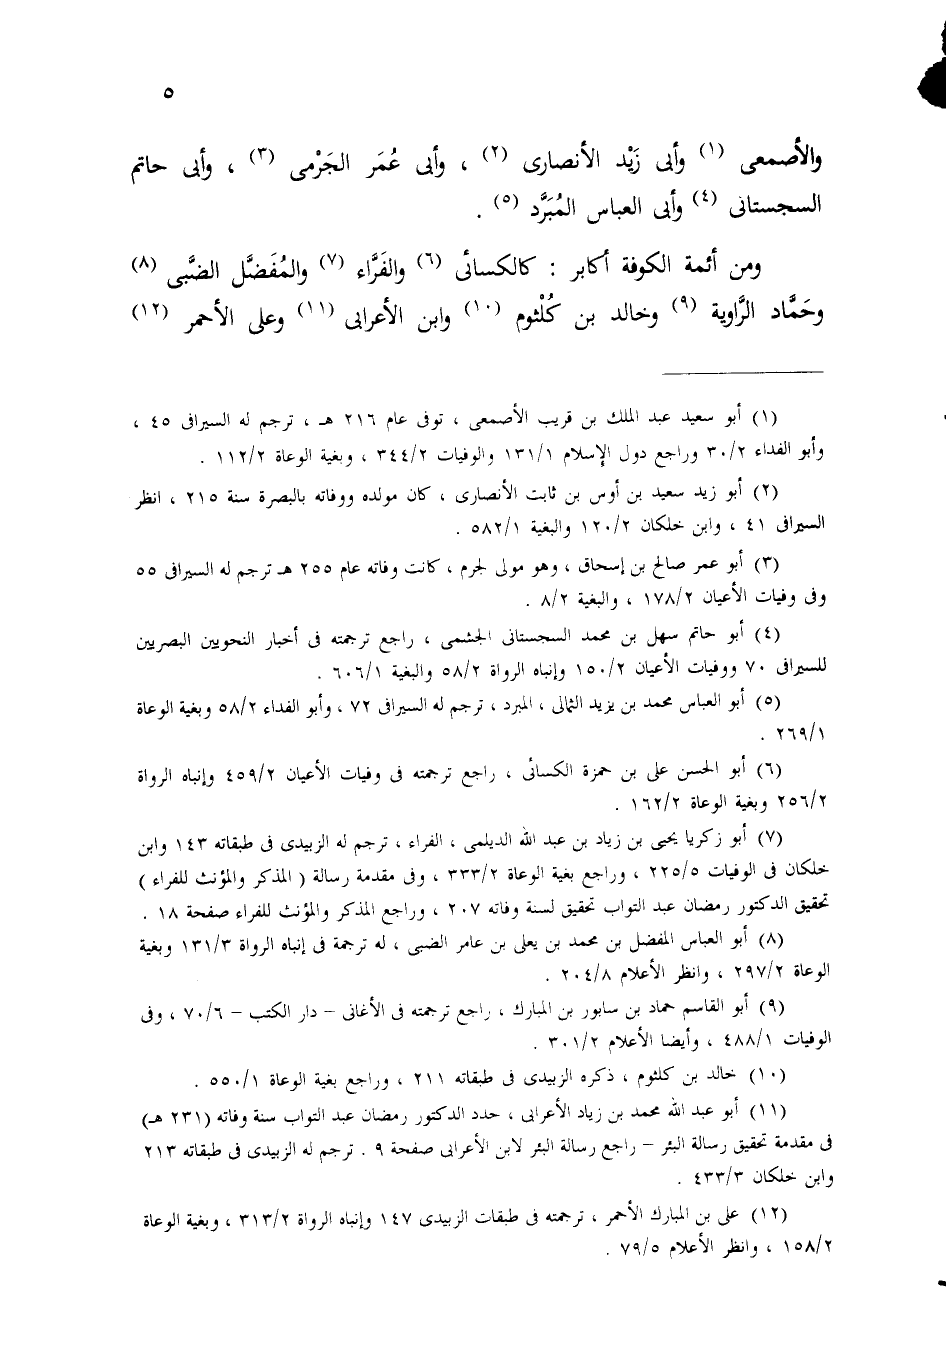 ٥
والأصمعى (١) وأبى زَيْد الأنصارى (٢) ، وأبى عُمَر الجَرْمى (٣) ، وأبى حاتم
السجستانى (٤) وأبى العباس المُبَرَّد (٥) .
ومن أئمة الكوفة أكابر : كالكسائى (٦) والفَرَّاء (٧) والمُفَضَّل الضَّبى (٨)
وحَمَّاد الرَّاوية (٩) وخالد بن كُلْثوم (١٠) وابن الأعرابى (١١) وعلى الأحمر (١٢)
(١) أبو سعيد عبد الملك بن قريب الأصمعى ، توفى عام ٢١٦ هـ ، ترجم له السيرافى ٤٥ ،
وأبو الفداء ٣٠/٢ وراجع دول الإسلام ١٣١/١ والوفيات ٣٤٤/٢ ، وبغية الوعاة ١١٢/٢ .
(٢) أبو زيد سعيد بن أوس بن ثابت الأنصارى ، كان مولده ووفاته بالبصرة سنة ٢١٥ ، انظر
السيرافى ٤١ ، وابن خلكان ١٢٠/٢ والبغية ٥٨٢/١ .
(٣) أبو عمر صالح بن إسحاق ، وهو مولى لجرم ، كانت وفاته عام ٢٥٥ هـ ترجم له السيرافى ٥٥
وفى وفيات الأعيان ١٧٨/٢ ، والبغية ٨/٢ .
(٤) أبو حاتم سهل بن محمد السجستانى الجشمى ، راجع ترجمته فى أخبار النحويين البصريين
للسيرافى ٧٠ ووفيات الأعيان ١٥٠/٢ وإنباه الرواة ٥٨/٢ والبغية ٦٠٦/١ .
(٥) أبو العباس محمد بن يزيد الثمالى ، المبرد ، ترجم له السيرافى ٧٢ ، وأبو الفداء ٥٨/٢ وبغية الوعاة
٢٦٩/١ .
(٦) أبو الحسن على بن حمزة الكسائى ، راجع ترجمته فى وفيات الأعيان ٤٥٩/٢ وإنباه الرواة
٢٥٦/٢ وبغية الوعاة ١٦٢/٢ .
(٧) أبو زكريا يحيى بن زياد بن عبد الله الديلمى ، الفراء ، ترجم له الزبيدى فى طبقاته ١٤٣ وابن
خلكان فى الوفيات ٢٢٥/٥ ، وراجع بغية الوعاة ٣٣٣/٢ ، وفى مقدمة رسالة ( المذكر والمؤنث للفراء )
تحقيق الدكتور رمضان عبد التواب تحقيق لسنة وفاته ٢٠٧ ، وراجع المذكر والمؤنث للفراء صفحة ١٨ .
(٨) أبو العباس المفضل بن محمد بن يعلى بن عامر الضبى ، له ترجمة فى إنباه الرواة ١٣١/٣ وبغية
الوعاة ٢٩٧/٢ ، وانظر الأعلام ٢٠٤/٨ .
(٩) أبو القاسم حماد بن سابور بن المبارك ، راجع ترجمته فى الأغانى – دار الكتب – ٧٠/٦ ، وفى
الوفيات ٤٨٨/١ ، وأيضا الأعلام ٣٠١/٢ .
(١٠) خالد بن كلثوم ، ذكره الزبيدى فى طبقاته ٢١١ ، وراجع بغية الوعاة ٥٥٠/١ .
(١١) أبو عبد الله محمد بن زياد الأعرابى ، حدد الدكتور رمضان عبد التواب سنة وفاته (٢٣١ هـ)
فى مقدمة تحقيق رسالة البئر – راجع رسالة البئر لابن الأعرابى صفحة ٩ . ترجم له الزبيدى فى طبقاته ٢١٣
وابن خلكان ٤٣٣/٣ .
(١٢) على بن المبارك الأحمر ، ترجمته فى طبقات الزبيدى ١٤٧ وإنباه الرواة ٣١٣/٢ ، وبغية الوعاة
١٥٨/٢ ، وانظر الأعلام ٧٩/٥ .